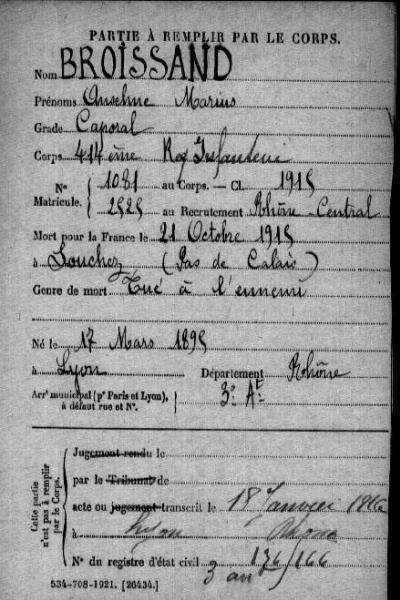 PARTIE À REMPLIR PAR LE CORPS.
Nom BROISSAND
Prénoms Anselme Marius
Grade Caporal
Corps 414ème Reg Infanterie
N° Matricule. { 1081 au Corps. — Cl. 1915
2525 au Recrutement Rhône-Central
Mort pour la France le 21 Octobre 1915
à Souchez (Pas de Calais)
Genre de mort Tué à l'ennemi
Né le 17 Mars 1895
à Lyon Département Rhône
Arrt municipal (pr Paris et Lyon), à défaut rue et N°. 3e At
Cette partie n'est pas à remplir par le Corps.
Jugement rendu le
par le Tribunal de
acte ou jugement transcrit le 18 Janvier 1916
à Lyon Rhône
N° du registre d'état civil 176/166
3 arr
534-708-1921. [26434.]